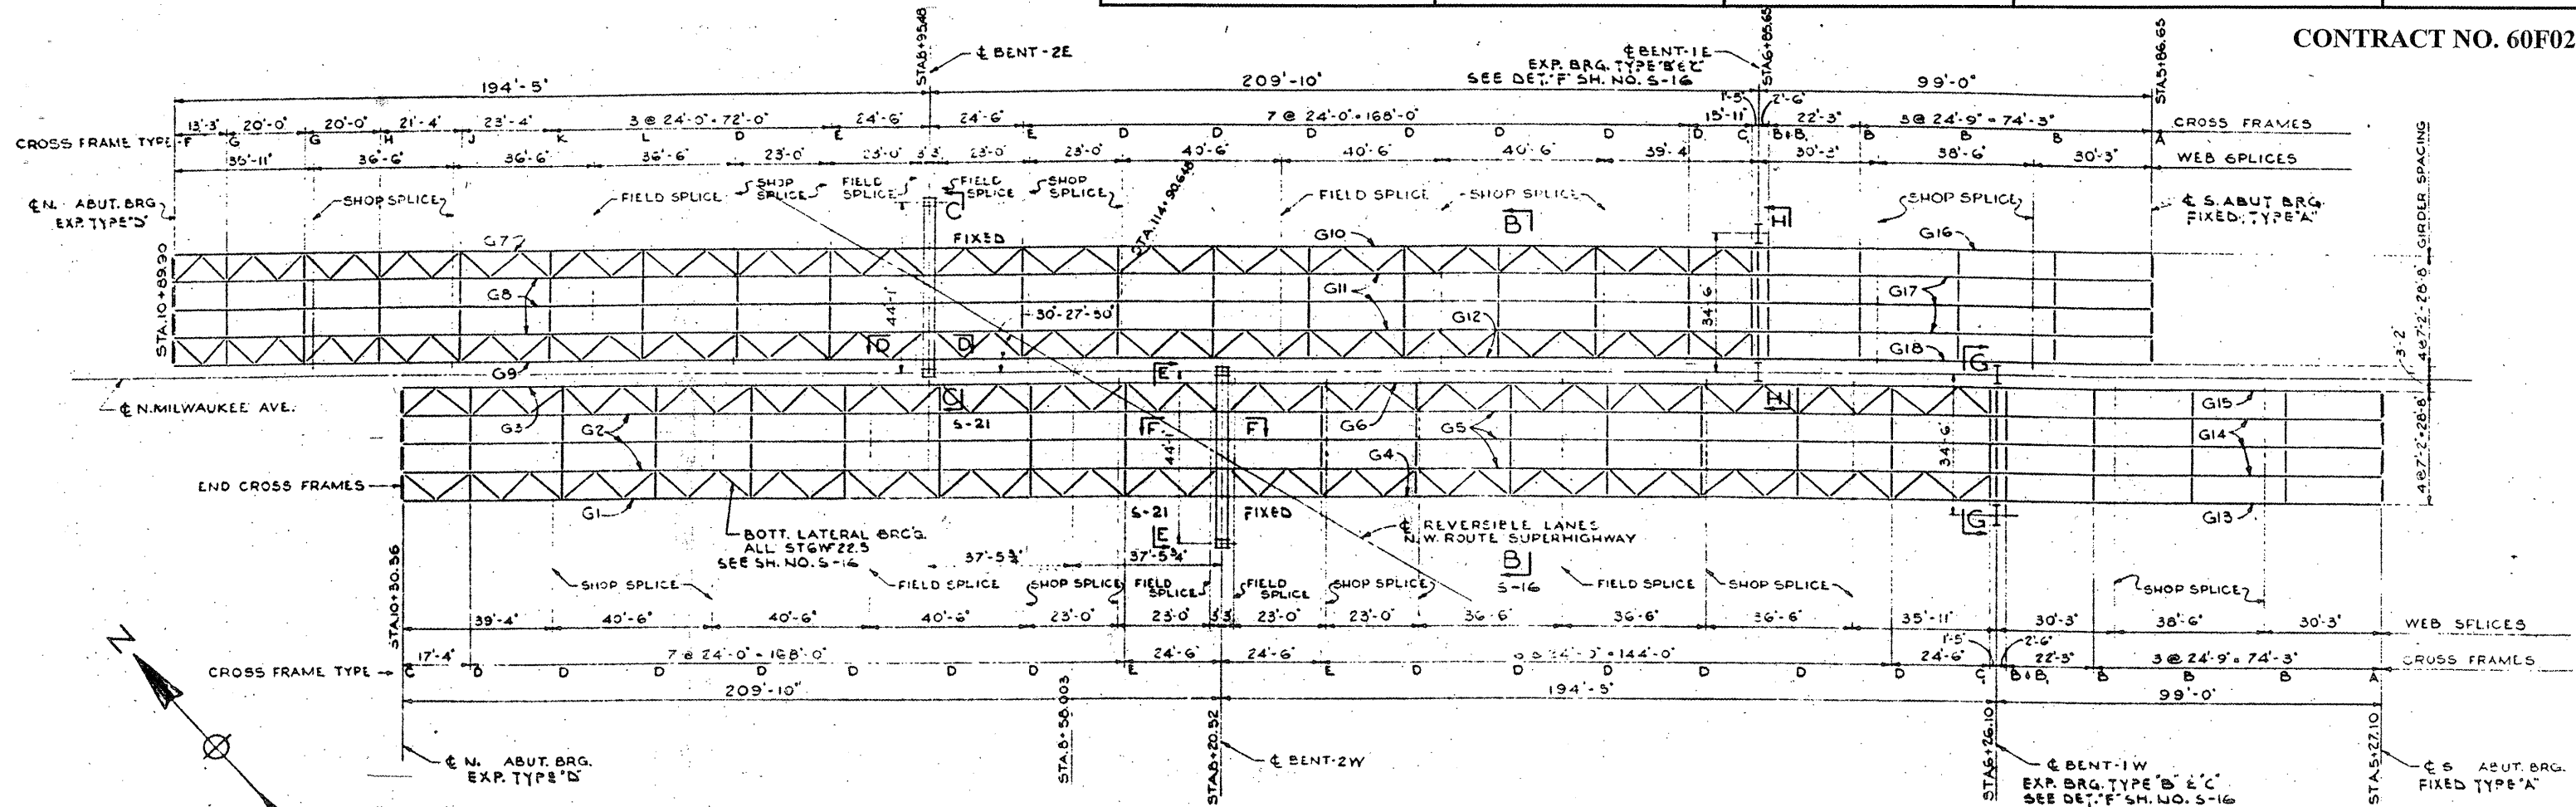 CONTRACT NO. 60F02
STA.8+95.48
℄ BENT-2E
℄ BENT-1E
EXP. BRG. TYPE "B" & "C"
SEE DET. "F" SH. NO. S-16
STA.6+85.65
STA.5+86.65
194'-5"
209'-10"
99'-0"
1'-5"
2'-6"
13'-3" 20'-0" 20'-0" 21'-4" 23'-4" 3 @ 24'-0" = 72'-0" 24'-6" 24'-6" 7 @ 24'-0" = 168'-0" 15'-11" 22'-3" 3 @ 24'-9" = 74'-3" CROSS FRAMES
CROSS FRAME TYPE F G G H J K L D E E D D D D D D D C B & B₁ B B B A
35'-11" 36'-6" 36'-6" 36'-6" 23'-0" 23'-0" 3'3" 23'-0" 23'-0" 40'-6" 40'-6" 40'-6" 39'-4" 30'-3" 38'-6" 30'-3" WEB SPLICES
℄ N. ABUT. BRG
EXP. TYPE "D"
SHOP SPLICE
FIELD SPLICE
SHOP SPLICE
FIELD SPLICE
FIELD SPLICE
SHOP SPLICE
STA.114+90.648
FIELD SPLICE
SHOP SPLICE
SHOP SPLICE
℄ S. ABUT BRG.
FIXED, TYPE "A"
GIRDER SPACING
4@7'-2=28'-8"
STA.10+89.90
G7
C
FIXED
G10
B
H
G16
G8
44'-1"
30-27-50
G11
G12
34'-6"
G17
G18
D
D
G9
E
G
1'-3'2
℄ N. MILWAUKEE AVE.
G3
G2
C
S-21
F
F
44'-1"
G6
G5
G4
H
34'-6"
G15
G14
4@7'-2=28'-8"
END CROSS FRAMES
G1
S-21
E
FIXED
G
G13
BOTT. LATERAL BRC'G.
ALL ST6W 22.5
SEE SH. NO. S-16
37'-5¾"
37'-5¾"
℄ REVERSIBLE LANES
N.W. ROUTE SUPERHIGHWAY
B
S-16
STA.10+30.36
SHOP SPLICE
FIELD SPLICE
SHOP SPLICE
FIELD SPLICE
FIELD SPLICE
SHOP SPLICE
FIELD SPLICE
SHOP SPLICE
SHOP SPLICE
39'-4" 40'-6" 40'-6" 40'-6" 23'-0" 23'-0" 3'3" 23'-0" 23'-0" 36'-6" 36'-6" 36'-6" 35'-11" 30'-3" 38'-6" 30'-3" WEB SPLICES
1'-5"
2'-6"
17'-4" 7 @ 24'-0" = 168'-0" 24'-6" 24'-6" 24'-6" 22'-3" 3 @ 24'-9" = 74'-3" CROSS FRAMES
CROSS FRAME TYPE C D D D D D D E E D D D D D D C B & B₁ B B B A
209'-10"
194'-5"
99'-0"
N
℄ N. ABUT. BRG.
EXP. TYPE "D"
STA.8+58.003
STA.8+20.52
℄ BENT-2W
STA.6+26.10
℄ BENT-1W
EXP. BRG. TYPE "B" & "C"
SEE DET. "F" SH. NO. S-16
STA.5+27.10
℄ S ABUT. BRG.
FIXED TYPE "A"